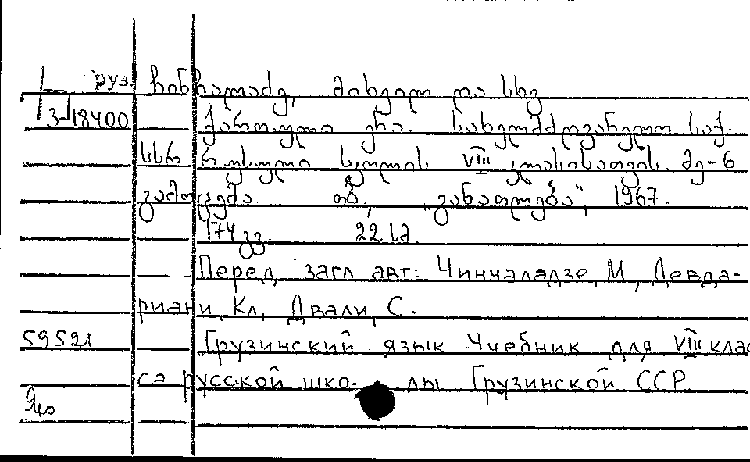 груз. ჩინჩალაძე, მიხეილ და სხვ
Г3-18400 ქართული ენა. სახელმძღვანელო საქ.
სსრ რუსული სკოლის VIII კლასისათვის. მე-6
გამოცემა თბ., "განათლება", 1967.
174 გვ. 22 სმ.
Перед загл авт: Чинчаладзе, М, Девда-
риани, Кл, Двали, С.
59521 Грузинский язык Учебник для VIII клас
са русской шко- лы Грузинской ССР.